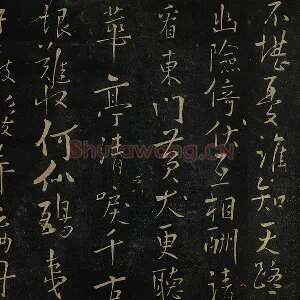 不堪憂誰知天路
幽險倚伏互相酬請
看東門黃犬更聽
華亭清唳千古
恨難收何似鴟夷
Shufawang.CN